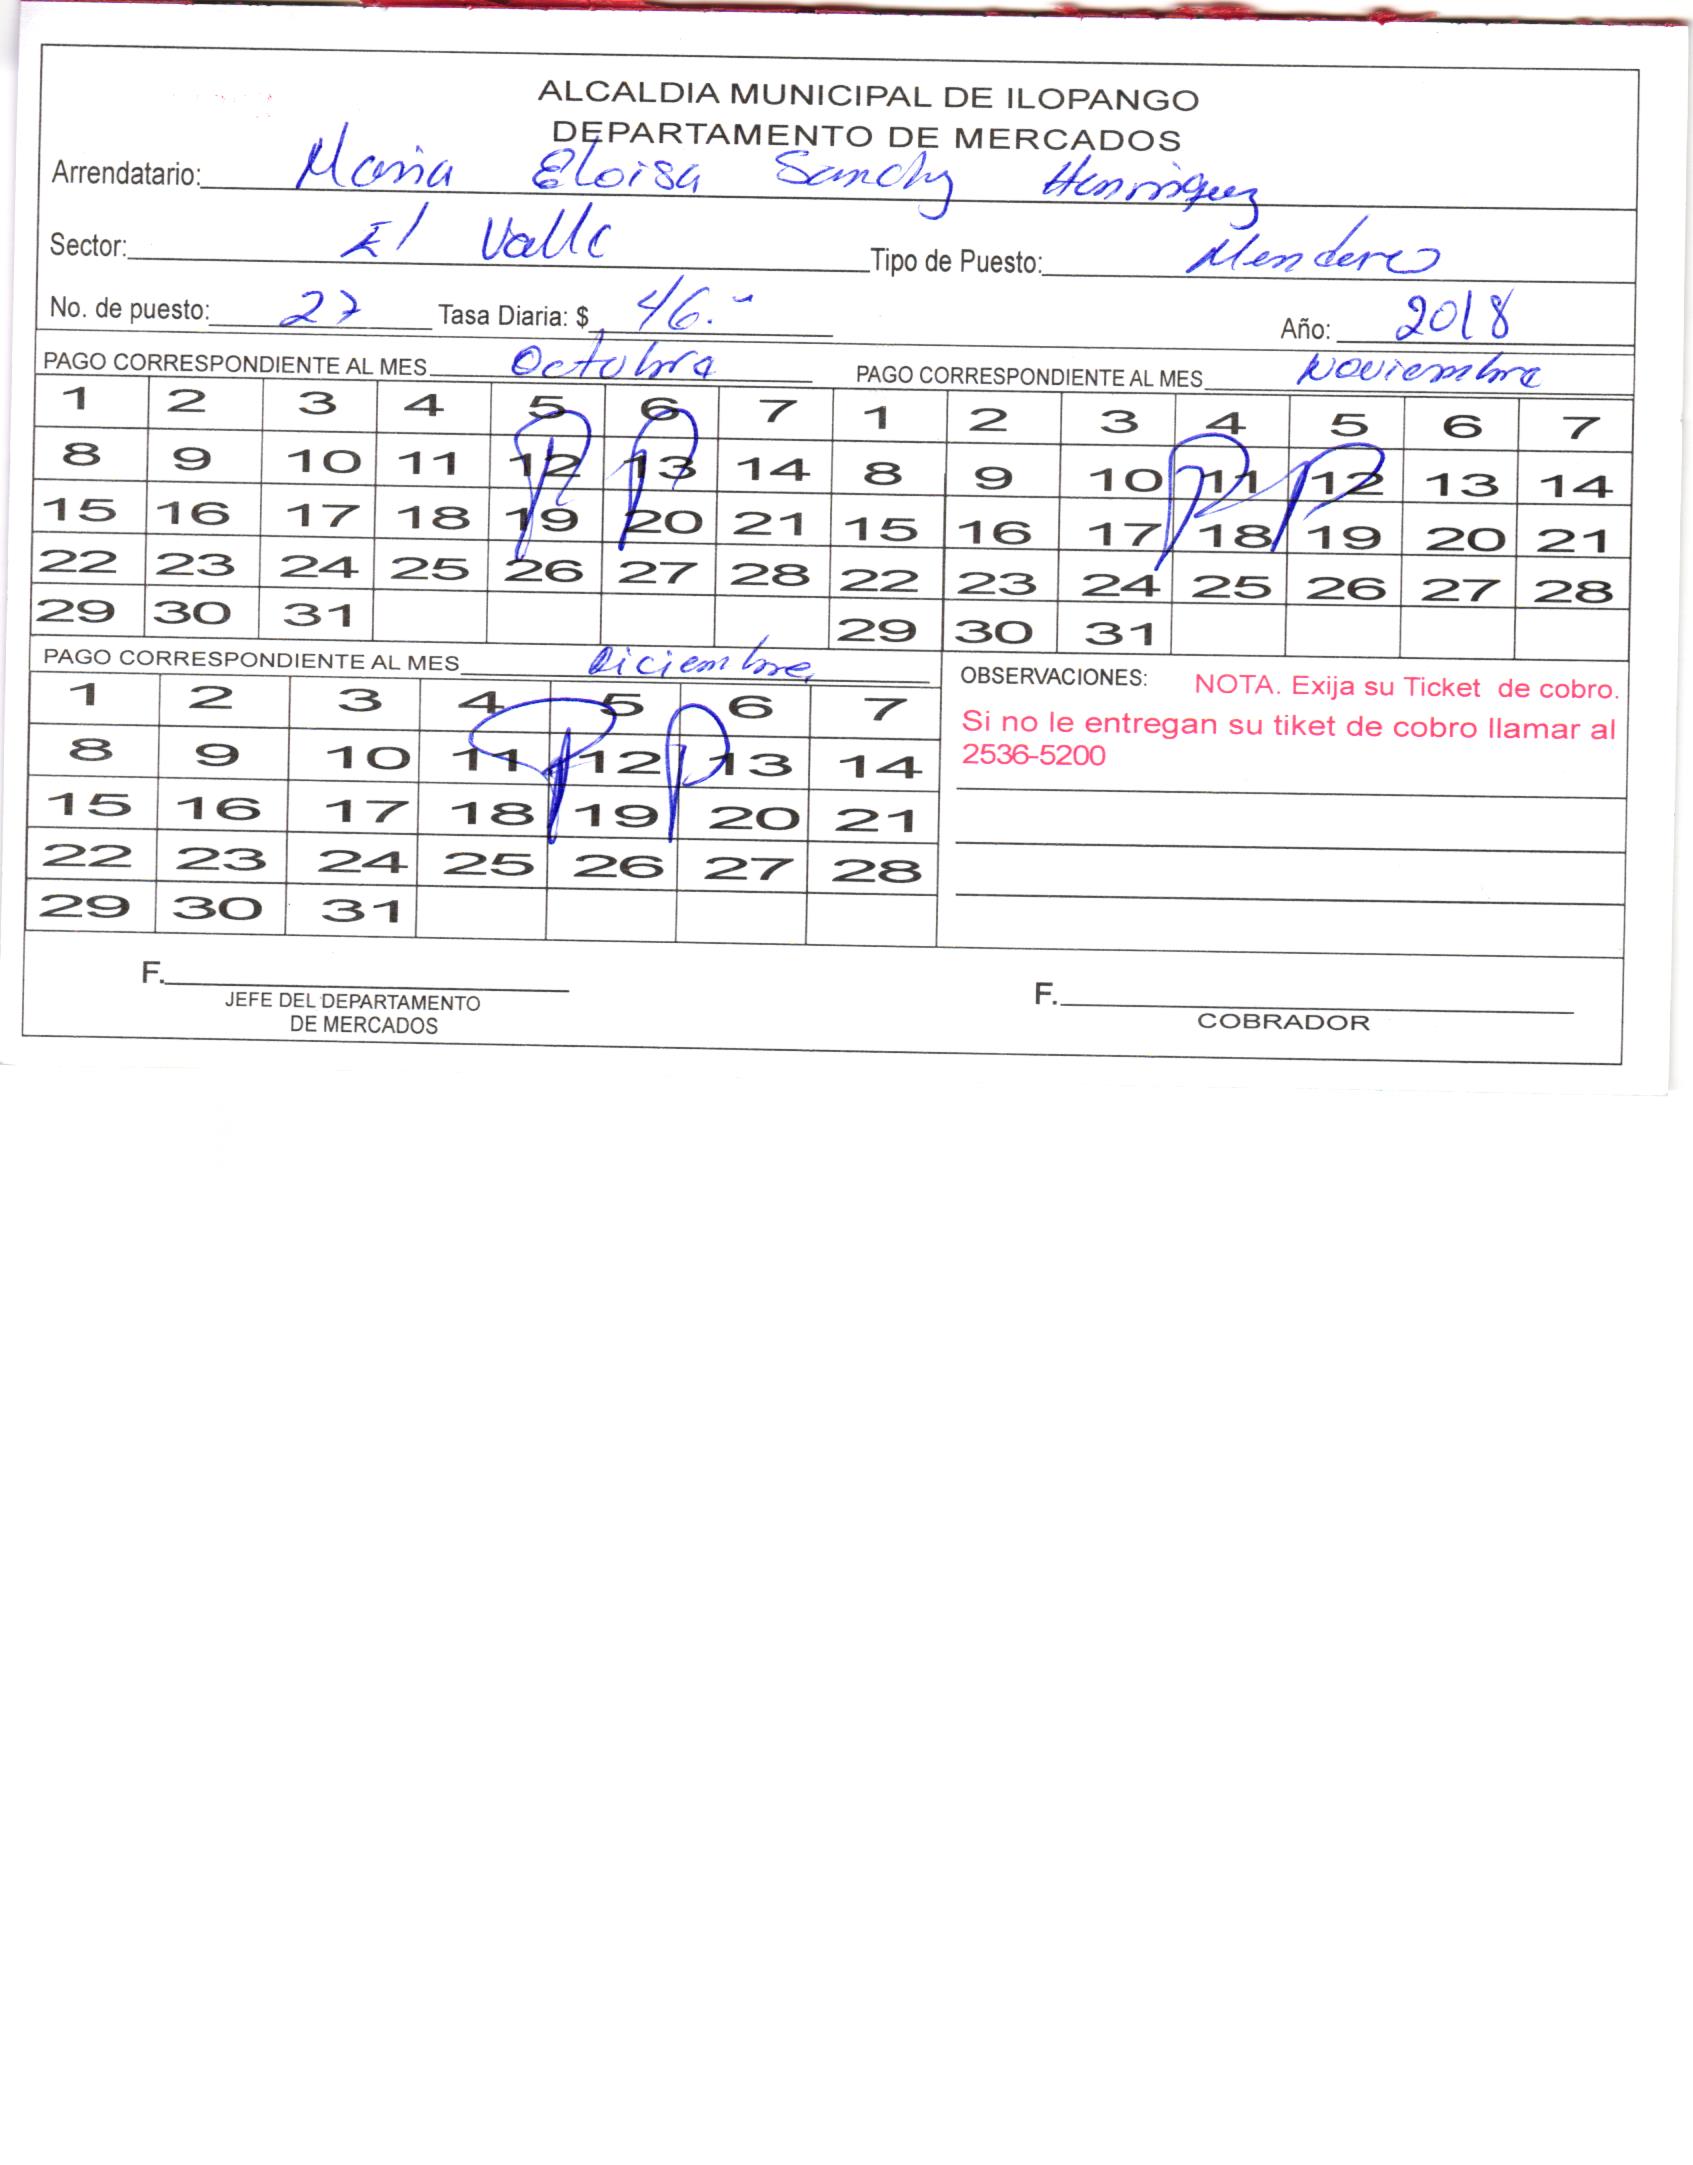 ALCALDIA MUNICIPAL DE ILOPANGO
DEPARTAMENTO DE MERCADOS
Arrendatario: Maria Eloisa Henriquez
Sector: El Valle Tipo de Puesto:
No. de puesto: 27 Tasa Diaria: $ 46.- Año: 2018
PAGO CORRESPONDIENTE AL MES Octubre PAGO CORRESPONDIENTE AL MES Noviembre
1 2 3 4 5 6 7 1 2 3 4 5 6 7
8 9 10 11 12 13 14 8 9 10 11 12 13 14
15 16 17 18 19 20 21 15 16 17 18 19 20 21
22 23 24 25 26 27 28 22 23 24 25 26 27 28
29 30 31 29 30 31
PAGO CORRESPONDIENTE AL MES Diciembre
1 2 3 4 5 6 7
8 9 10 11 12 13 14
15 16 17 18 19 20 21
22 23 24 25 26 27 28
29 30 31
OBSERVACIONES: NOTA. Exija su Ticket de cobro.
Si no le entregan su tiket de cobro llamar al
2536-5200
F.
JEFE DEL DEPARTAMENTO
DE MERCADOS
F.
COBRADOR